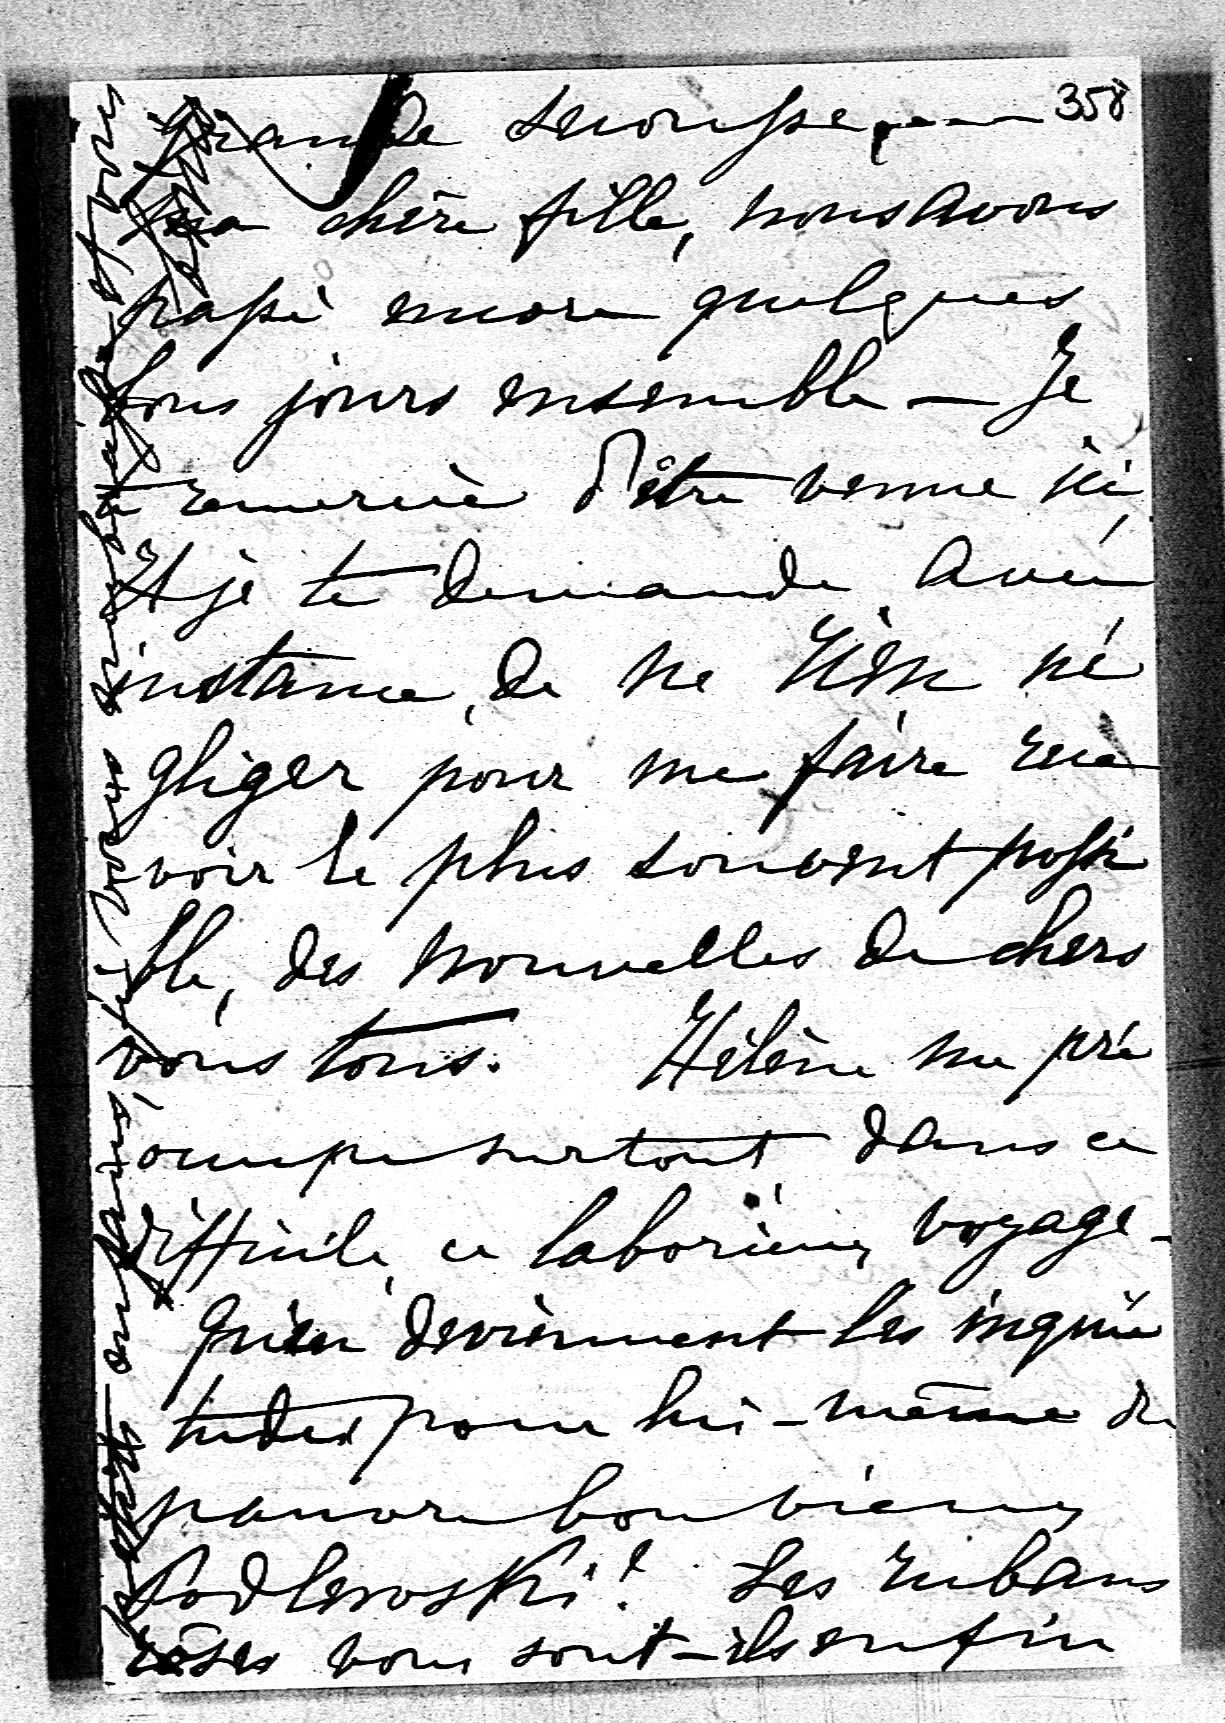 358
grande secousse,
ma chère fille, nous avons
passé encore quelques
bons jours ensemble — Je
te remercie d'être venue ici,
Et je te demande avec
instance, de ne rien né
gliger pour me faire rece
voir le plus souvent possi
ble, des nouvelles de chers
vous tous. Hélène me pré
occupe surtout dans ce
difficile, ce laborieux voyage -
Qu'en deviennent les inquié
tudes pour lui-même du
pauvre bon vieux
Podlewski? Les rubans
roses vous sont-ils enfin